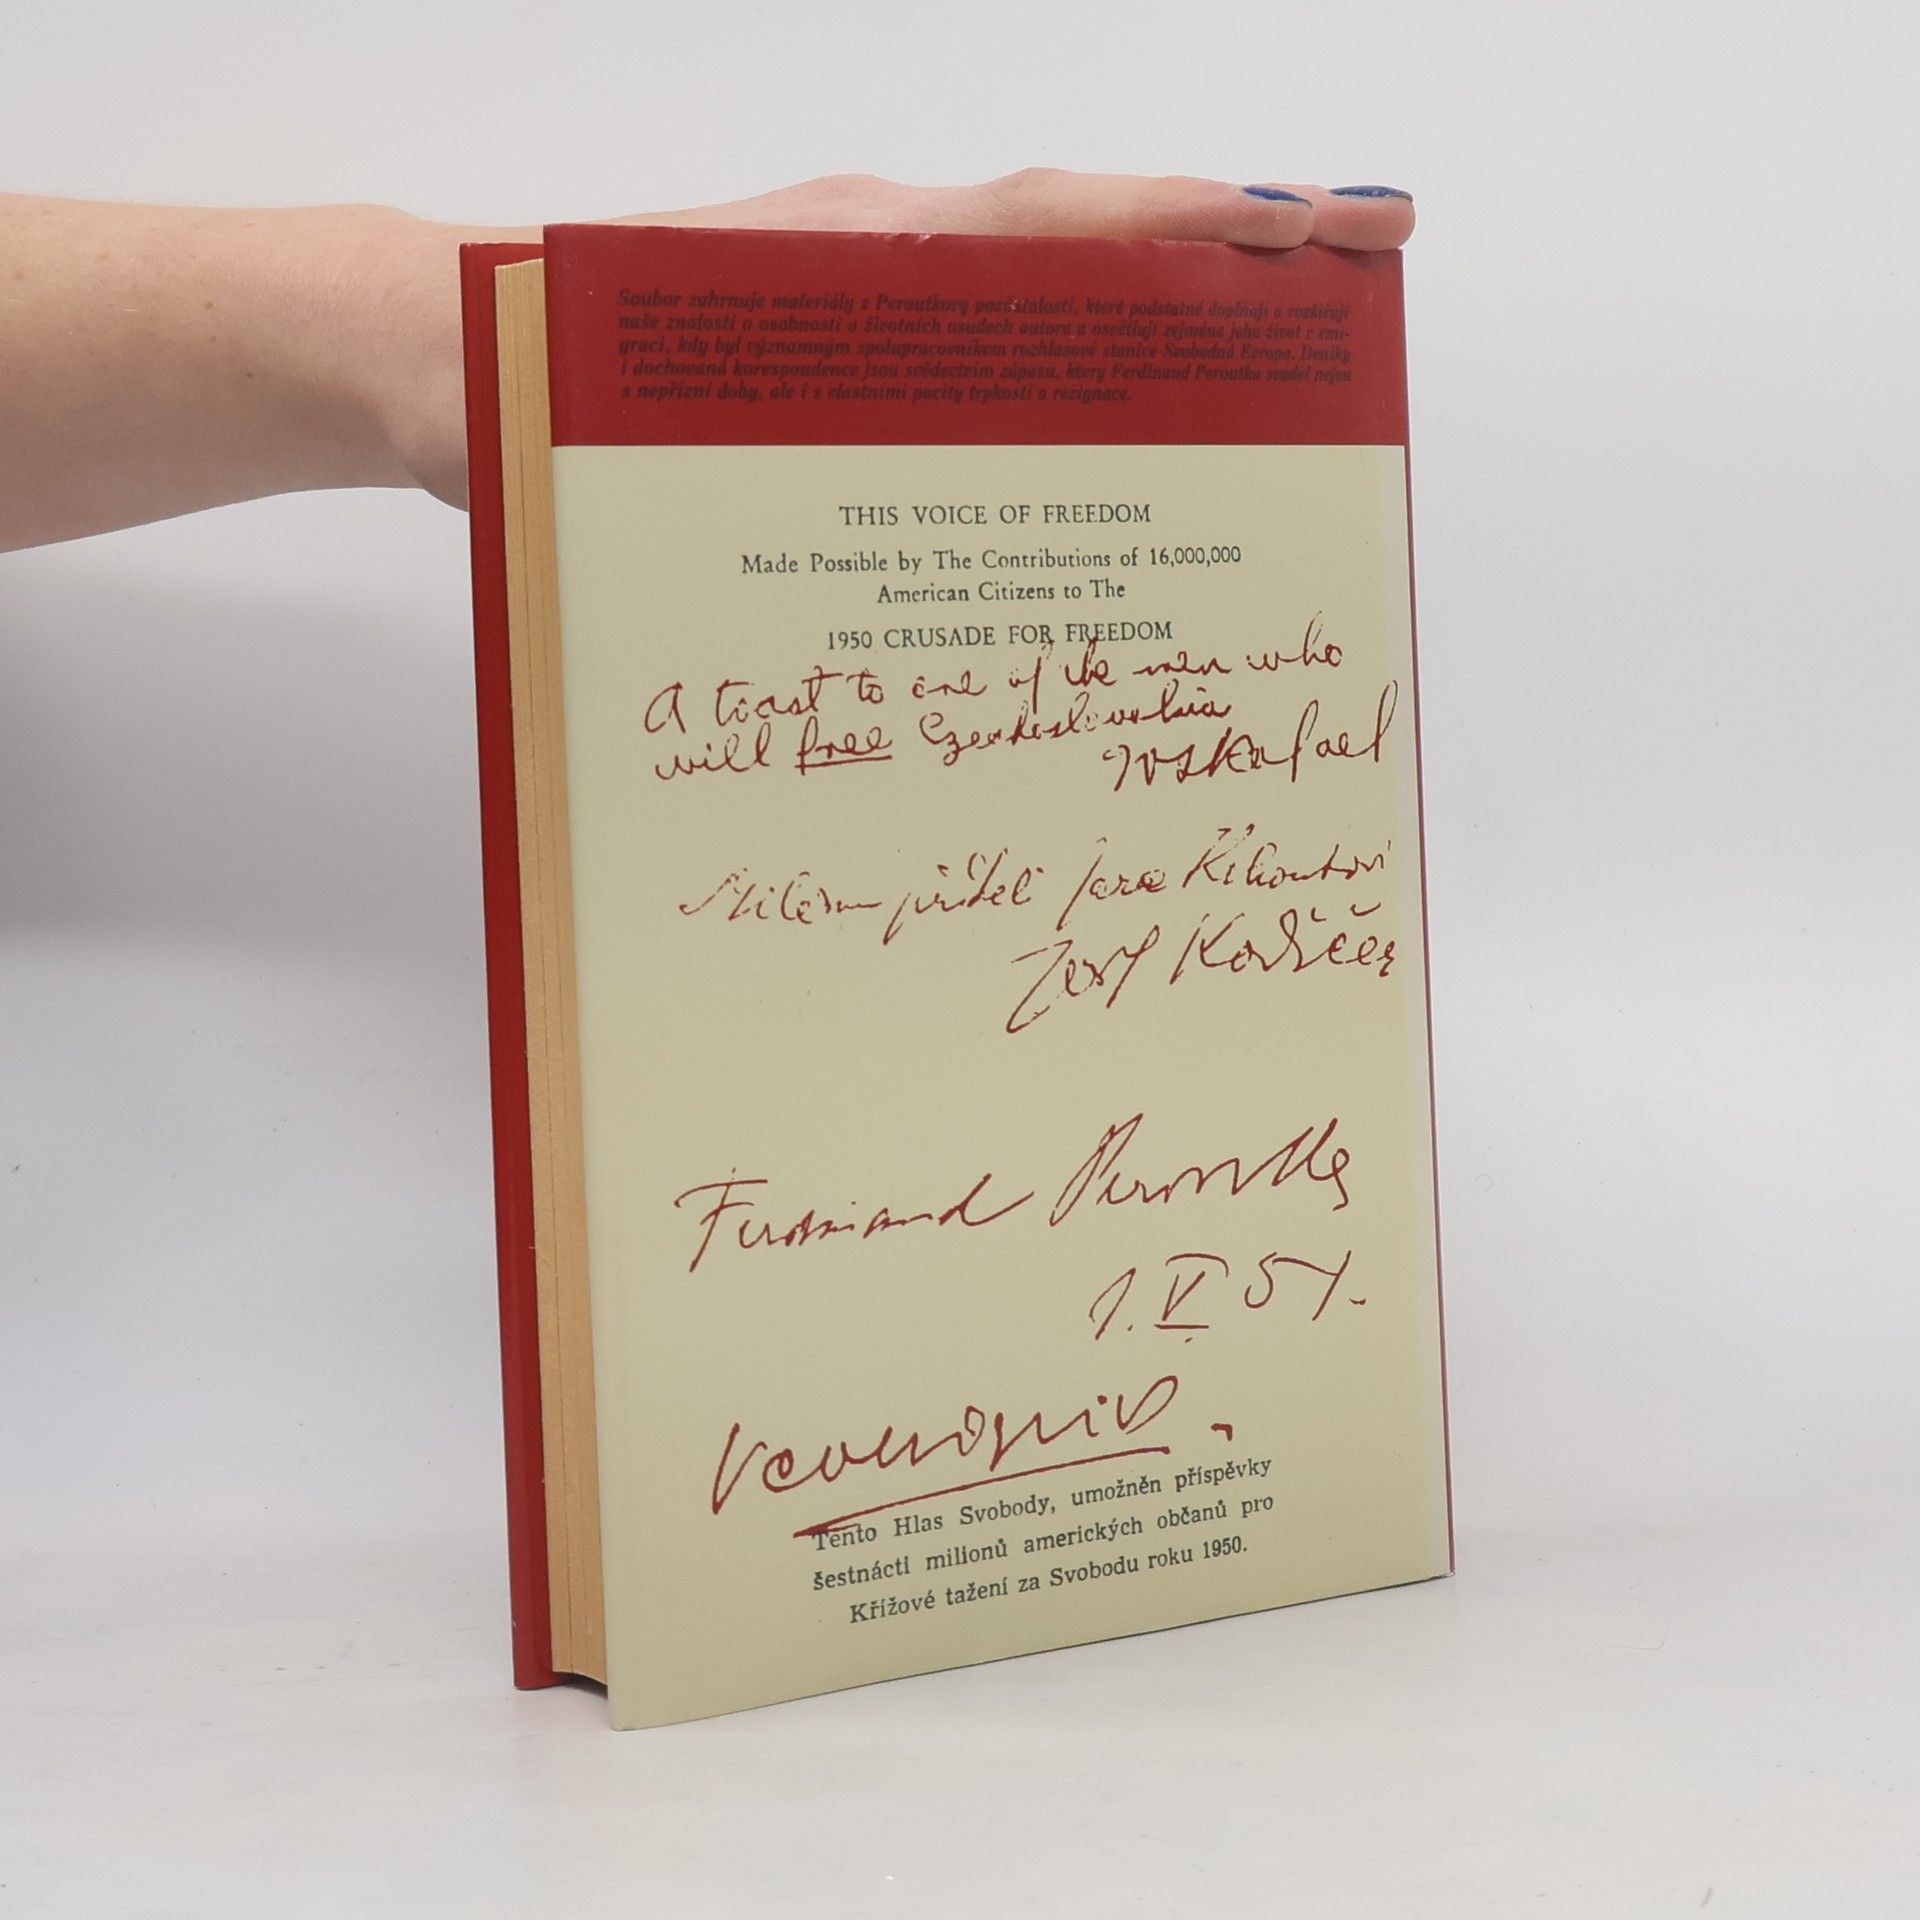 Soubor zahrnuje materiály z Peroutkovy pozůstalosti, které podstatně doplňují a rozšiřují
naše znalosti o osobnosti a životních osudech autora a osvětlují zejména jeho život v emi-
graci, kdy byl významným spolupracovníkem rozhlasové stanice Svobodná Evropa. Deníky
i dochovaná korespondence jsou svědectvím zápasu, který Ferdinand Peroutka sváděl nejen
s nepřízní doby, ale i s vlastními pocity trpkosti a rezignace.
THIS VOICE OF FREEDOM
Made Possible by The Contributions of 16,000,000
American Citizens to The
1950 CRUSADE FOR FREEDOM
A toast to one of the men who
will free Czechoslovakia
příteli
Josef Kodíček
Ferdinand Peroutka
1. V 51.
Tento Hlas Svobody, umožněn příspěvky
šestnácti milionů amerických občanů pro
Křížové tažení za Svobodu roku 1950.